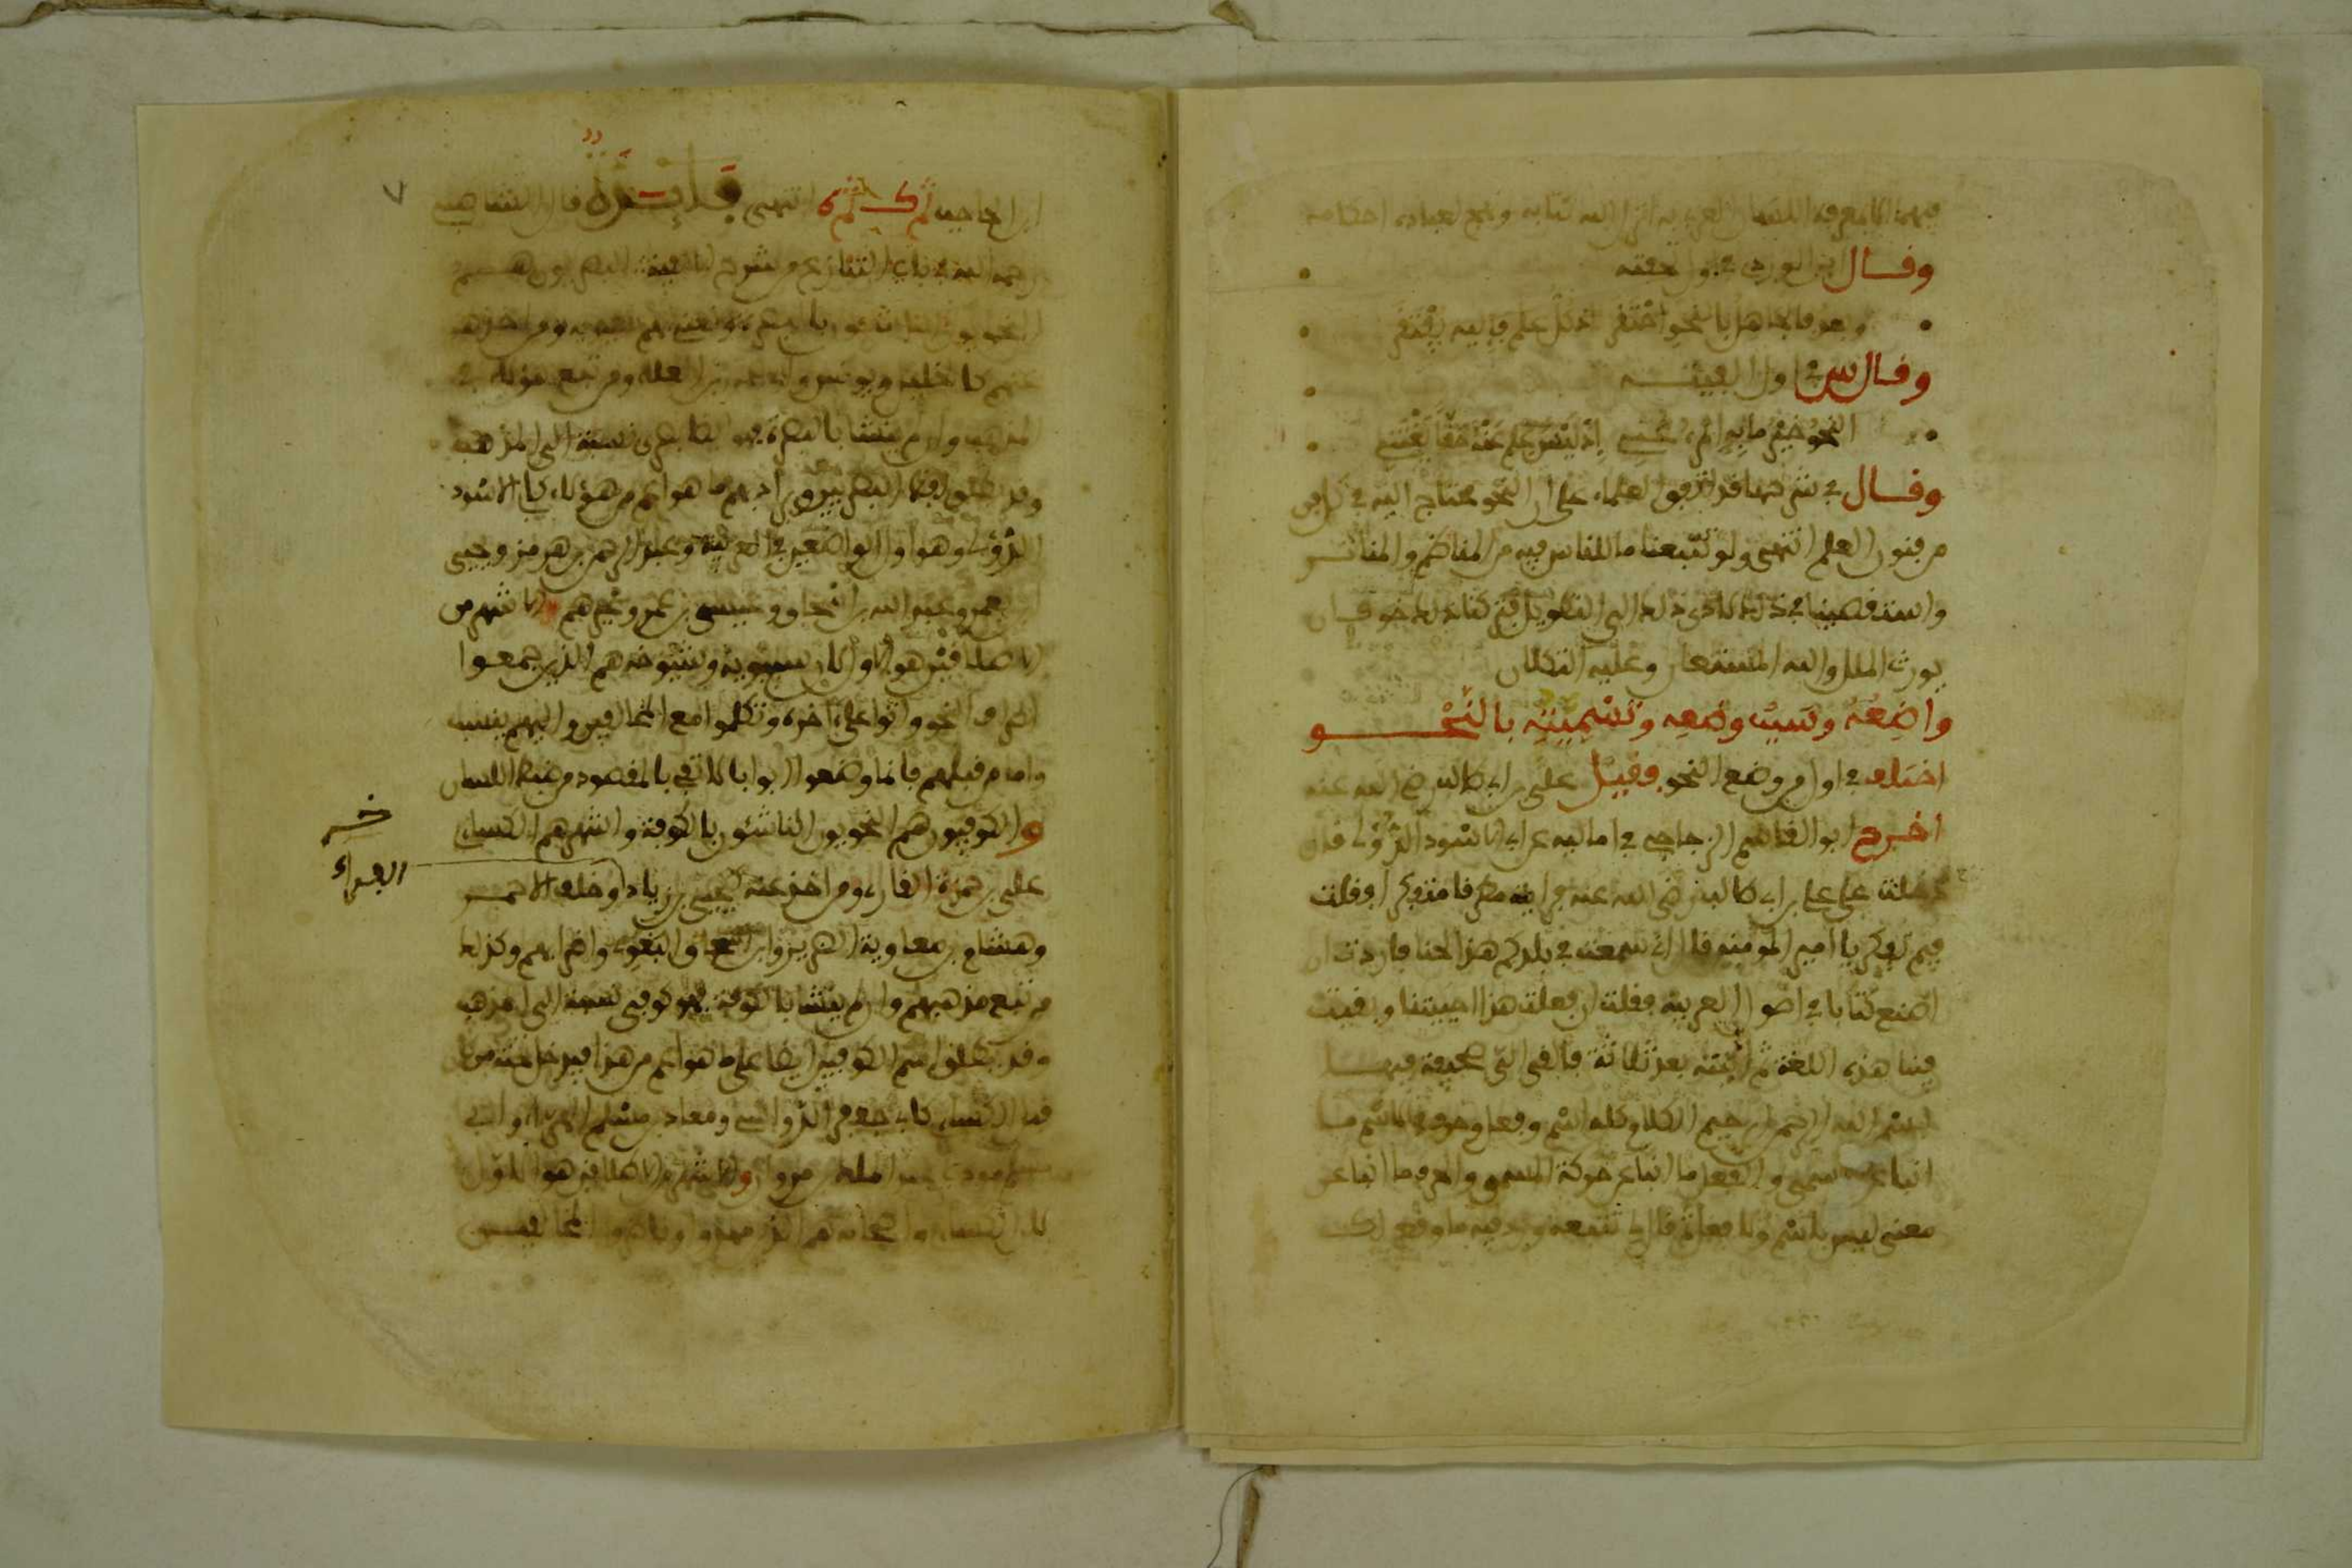 فهمه الا بمعرفة اللسان العربي به انزل الله كتابه ونهج لعباده احكامه
وقال ابن الوردي في اول تحفته
وبعد فالجاهل بالنحو احتقر اذ كل علم فإليه يفتقر
وقال س في اول الفيته
النحو خير ما به المرء عُني إذ ليس علم عنه حقا يغتني
وقال في شرحها قد اتفق العلماء على ان النحو يحتاج اليه في كل فن
من فنون العلم انتهى ولو تتبعنا ما للناس فيه من المناظم والمناثر
واستقصينا في ذلك لأدى ذلك الى التطويل فتركنا ذلك خوف ان
يورث الملل والله المستعان وعليه التكلان
واضعه وسبب وضعه وتسميته بالنحو
اختلف في اول من وضع النحو فقيل علي بن ابي طالب رضي الله عنه
اخرج ابو القاسم الزجاجي في اماليه عن ابي الاسود الدؤلي قال
دخلت على علي بن ابي طالب رضي الله عنه فرايته مطرقا متفكرا فقلت
فيم تفكر يا امير المومنين قال اني سمعت في بلدكم هذا لحنا فاردت ان
اصنع كتابا في اصول العربية فقلت ان فعلت هذا احييتنا وبقيت
فينا هذه اللغة ثم اتيته بعد ثلاثة فالقى الي صحيفة فيها
بسم الله الرحمن الرحيم الكلام كله اسم وفعل وحرف فالاسم ما
انبأ عن المسمى والفعل ما انبأ عن حركة المسمى والحرف ما انبأ عن
معنى ليس باسم ولا فعل ثم قال لي تتبعه وزد فيه ما وقع لك
٧
ابن الحاجب انتهى فايدة قال الشاطبي
رحمه الله في باب التنازع من شرح الالفية البصريون هم
النحويون الناشئون بالبصرة
عنهم كالخليل ويونس وابي عمرو بن العلاء ومن تبع هؤلاء في
المذهب وان لم ينشأ بالبصرة فهو بصري نسبة الى المذهب
وقد يطلق لفظ البصريين ويراد بهم ما هو اعم من هؤلاء كابي الاسود
الدؤلي وهو اول الواضعين في العربية وعبد الرحمن بن هرمز ويحيى
بن يعمر وعبد الله بن اسحاق وعيسى بن عمر وغيرهم والاشهر من
الاطلاقين هو الاول لان سيبويه وشيوخه هم الذين جمعوا
اطراف النحو واتوا على اخره وتكلموا مع المخالفين واليهم ينسب
واما من قبلهم فانما وضعوا ابوابا لا تفي بالمقصود من ضبط اللسان
والكوفيون هم النحويون الناشئون بالكوفة واشهرهم الكسائي
علي بن حمزة القارئ ومن اخذ عنه كيحيى بن زياد وخلف الاحمر
الفراء
وهشام بن معاوية الضرير واللغوي واضرابهم وكذلك
من تبع مذهبهم وان لم ينشأ بالكوفة فهو كوفي نسبة الى المذهب
وقد يطلق اسم الكوفيين ايضا على ما هو اعم من هذا فيدخل تحته من
قبل الكسائي كابي جعفر الرؤاسي ومعاذ بن مسلم الهراء وابي
عبد الملك بن مروان والاشهر من الاطلاقين هو الاول
لان الكسائي واصحابه هم الذين مهدوا وناظروا المخالفين